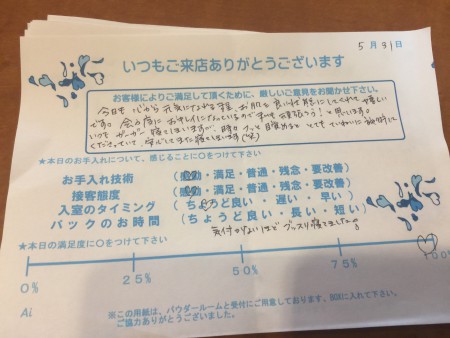 5月31日
いつもご来店ありがとうございます
お客様によりご満足して頂くために、厳しいご意見をお聞かせ下さい。
今日も心から元気になれる程、お肌も良い状態にしてくれて嬉しい
です。会う度に
いつもガンガン寝てしまいますが、時々フッと目覚めると とても ていねいに
くださっていて、安心してまた寝てしまいます(笑)
★本日のお手入れについて、感じることに○をつけて下さい。
お手入れ技術 (感動・満足・普通・残念・要改善)
接客態度 (感動・満足・普通・残念・要改善)
入室のタイミング (ちょうど良い・遅い・早い)
パックのお時間 (ちょうど良い・長い・短い)
気付かないほど グッスリ寝てました。
★本日の満足度に○をつけて下さい
0% 25% 50% 75% 100%
Ai
※この用紙は、パウダールームと受付にご用意しております、BOXに入れて下さい。
ご協力ありがとうございました。